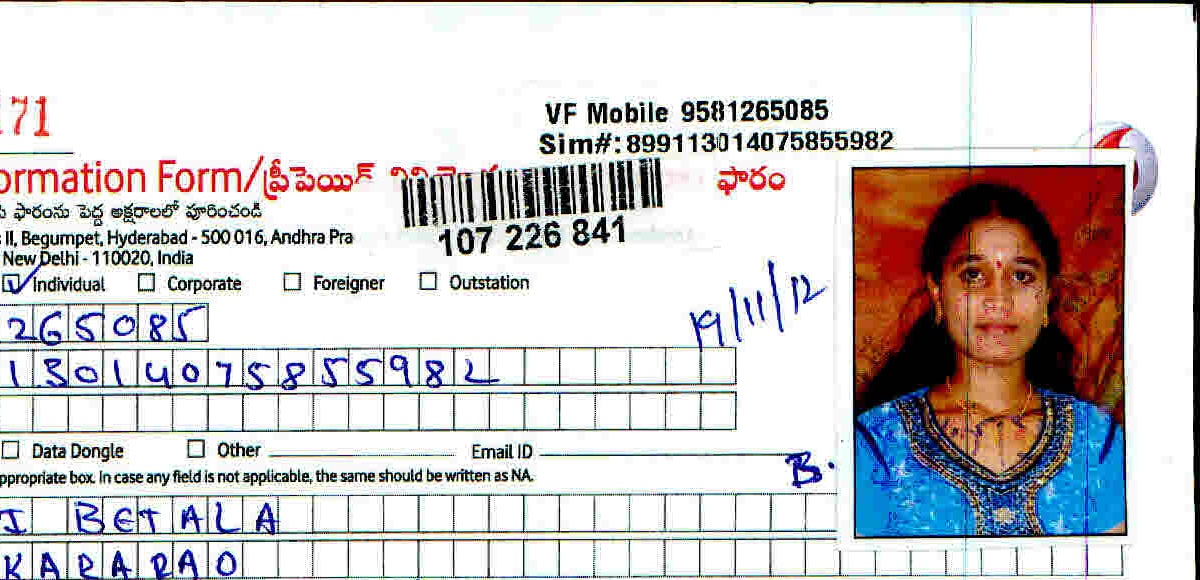 171
VF Mobile 9581265085
Sim#: 899113014075855982
ormation Form/ప్రీపెయిడ్ ఫారం
ఫారంను పెద్ద అక్షరాలలో పూరించండి
107 226 841
II, Begumpet, Hyderabad - 500 016, Andhra Pra
New Delhi - 110020, India
Individual Corporate Foreigner Outstation
19/11/12
265085
13014075855982
Data Dongle Other Email ID
ppropriate box. In case any field is not applicable, the same should be written as NA.
B.
I BETALA
KARARAO